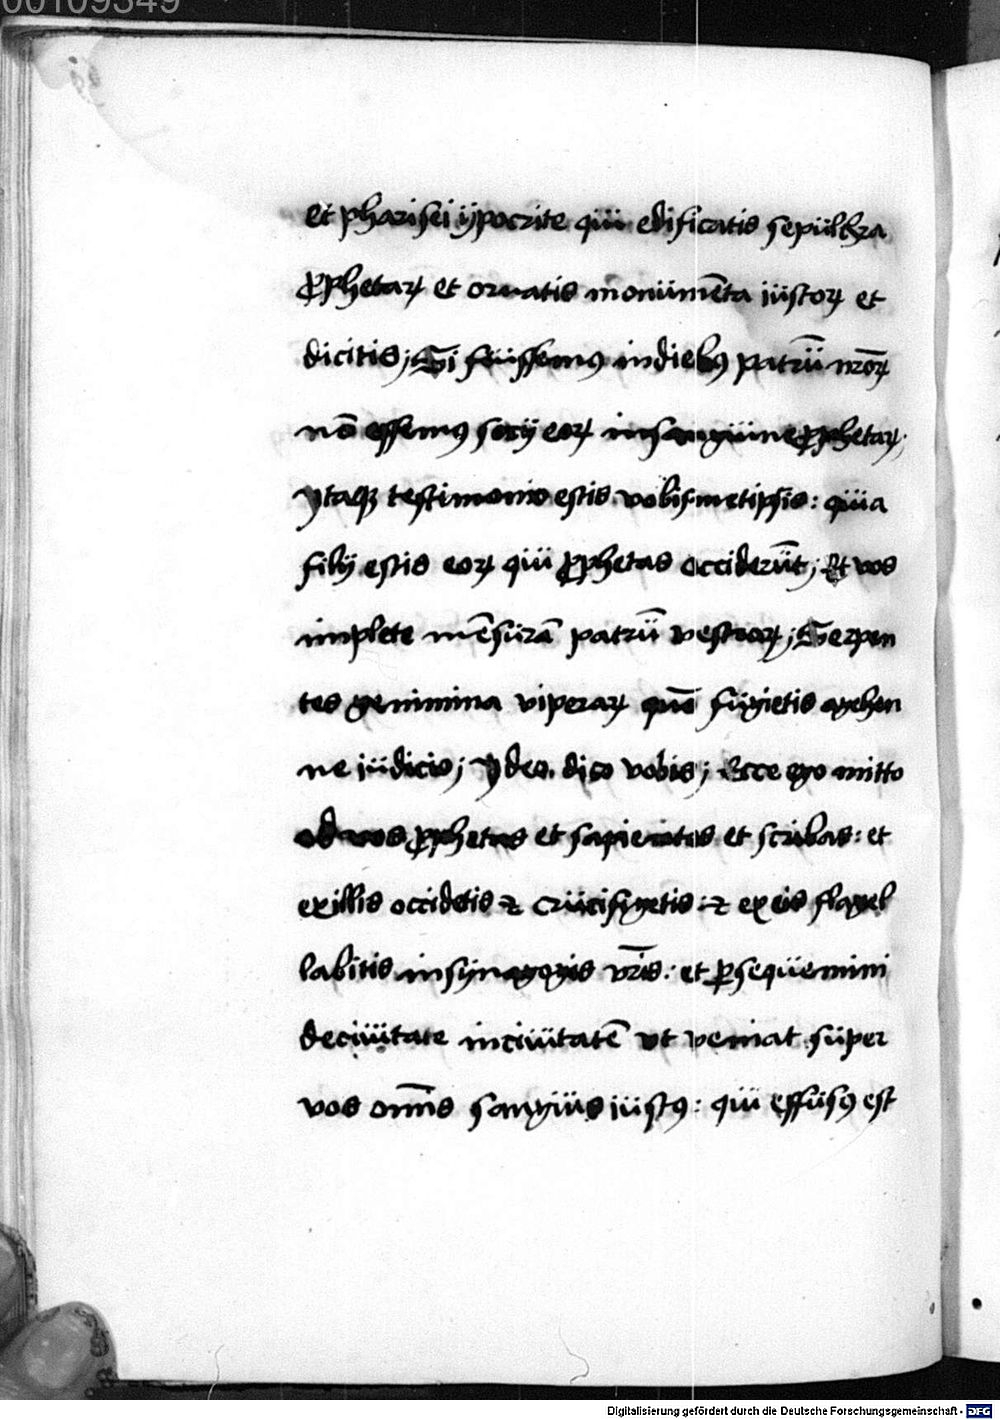 00109349
et pharisei ÿpocrite qui edificatis sepulchra
ꝓphetaꝝ et ornatis monumēta iustoꝝ et
dicitis; Si fuissemꝰ indiebꝰ patrū nr̄oꝝ
nō essemꝰ socij eoꝝ insanguine ꝓphetaꝝ.
Ytaqꝫ testimonio estis vobismetipsis: quia
filij estis eoꝝ qui ꝓphetas occiderūt; Et vos
implete mēsurā patrū vestroꝝ; Serpen
tes genimina viperaꝝ quō fugietis agehen
ne iudicio; Ydeo dico vobis; Ecce ego mitto
ad vos ꝓphetas et sapientes et scribas: et
exillis occidetis ⁊ crucifigetis: ⁊ ex eis flagel
labitis insynagogis vr̄is: et ꝑsequemini
deciuitate inciuitatē vt veniat super
vos om̄is sanguis iustꝰ: qui effusꝰ est
Digitalisierung gefördert durch die Deutsche Forschungsgemeinschaft - DFG